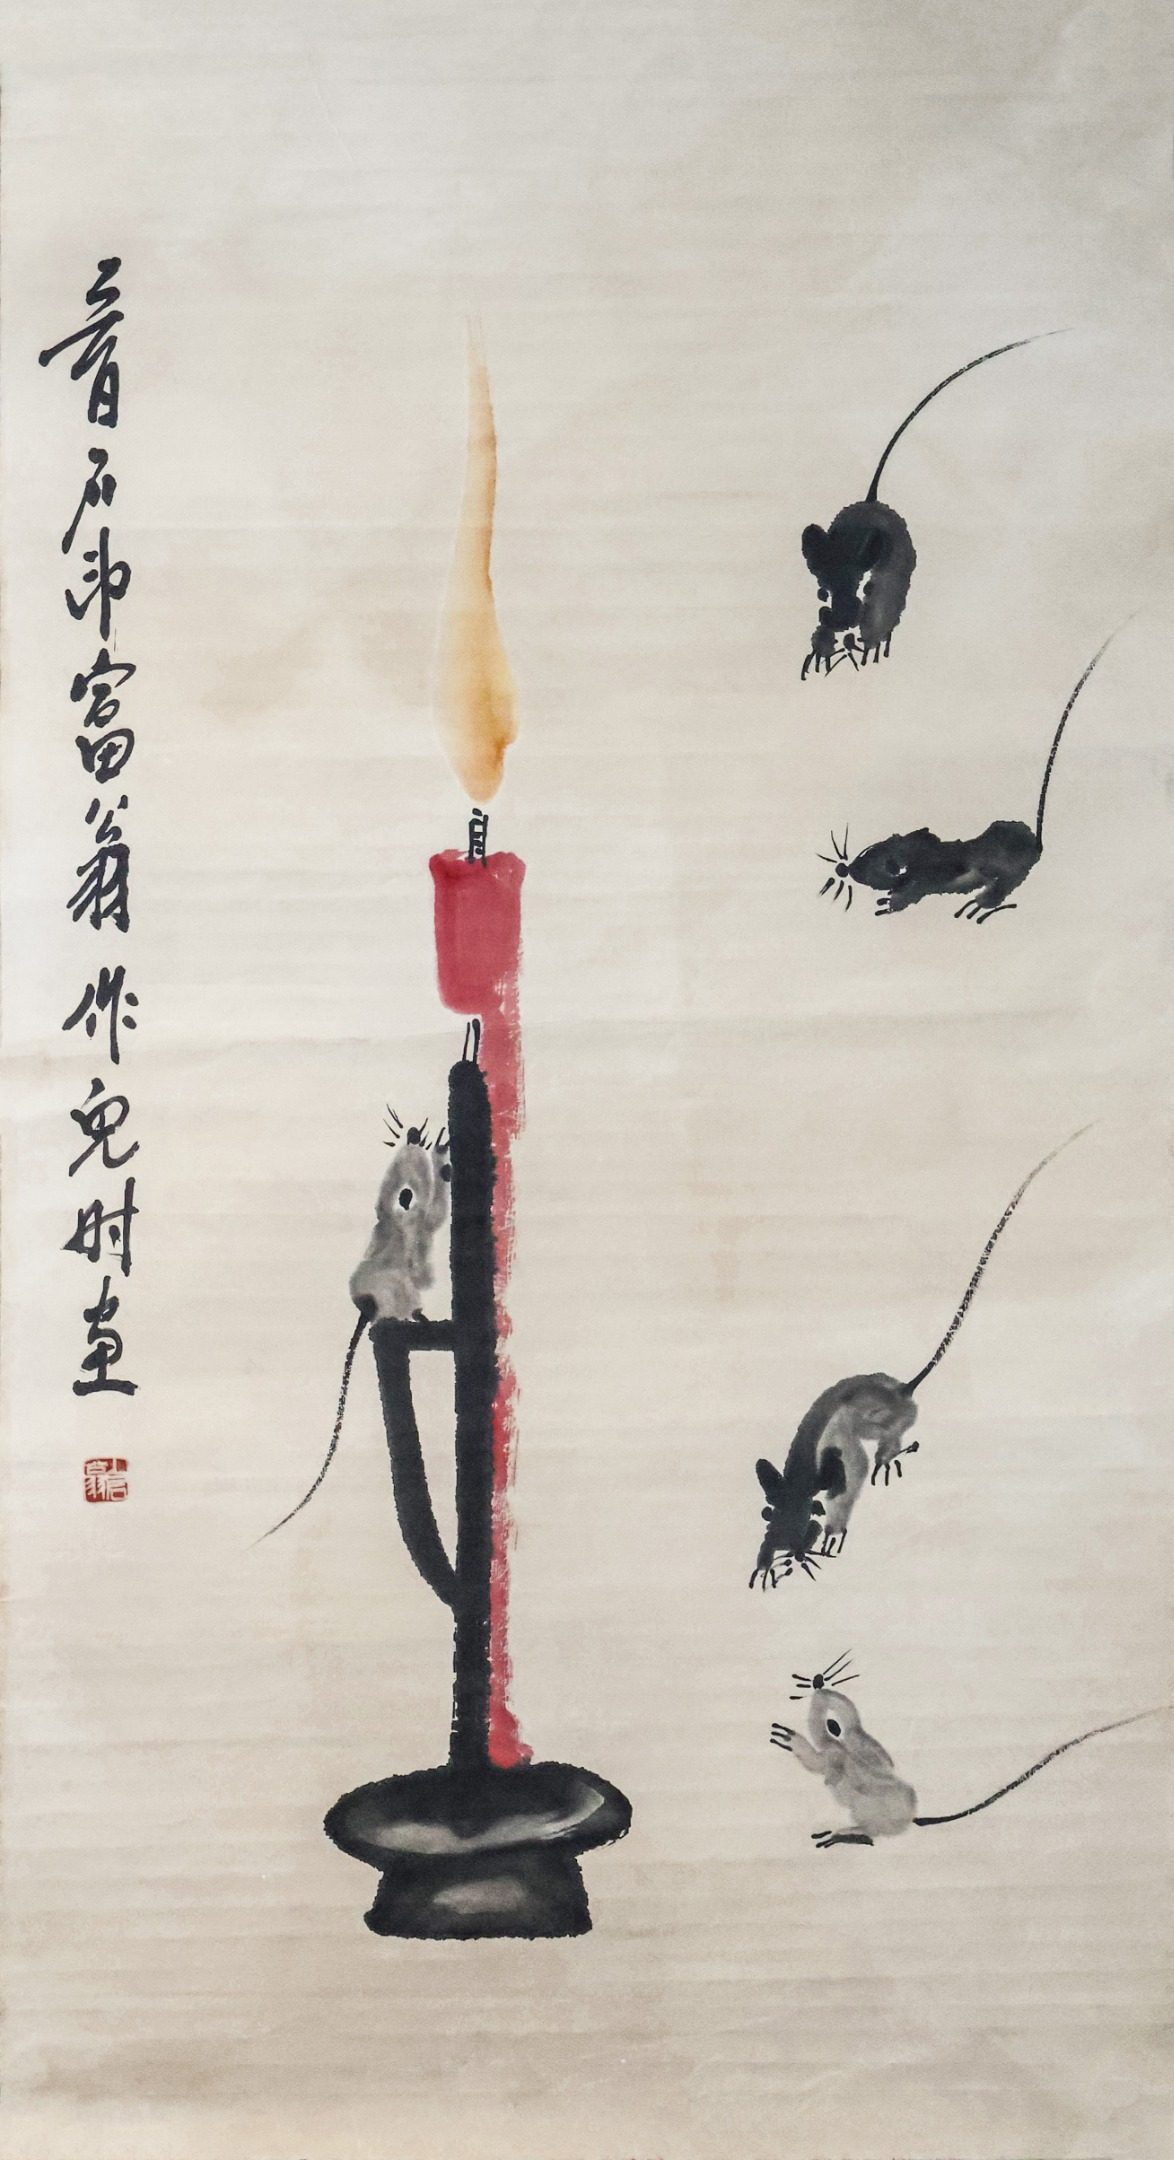 三百石印富翁作兒时畫